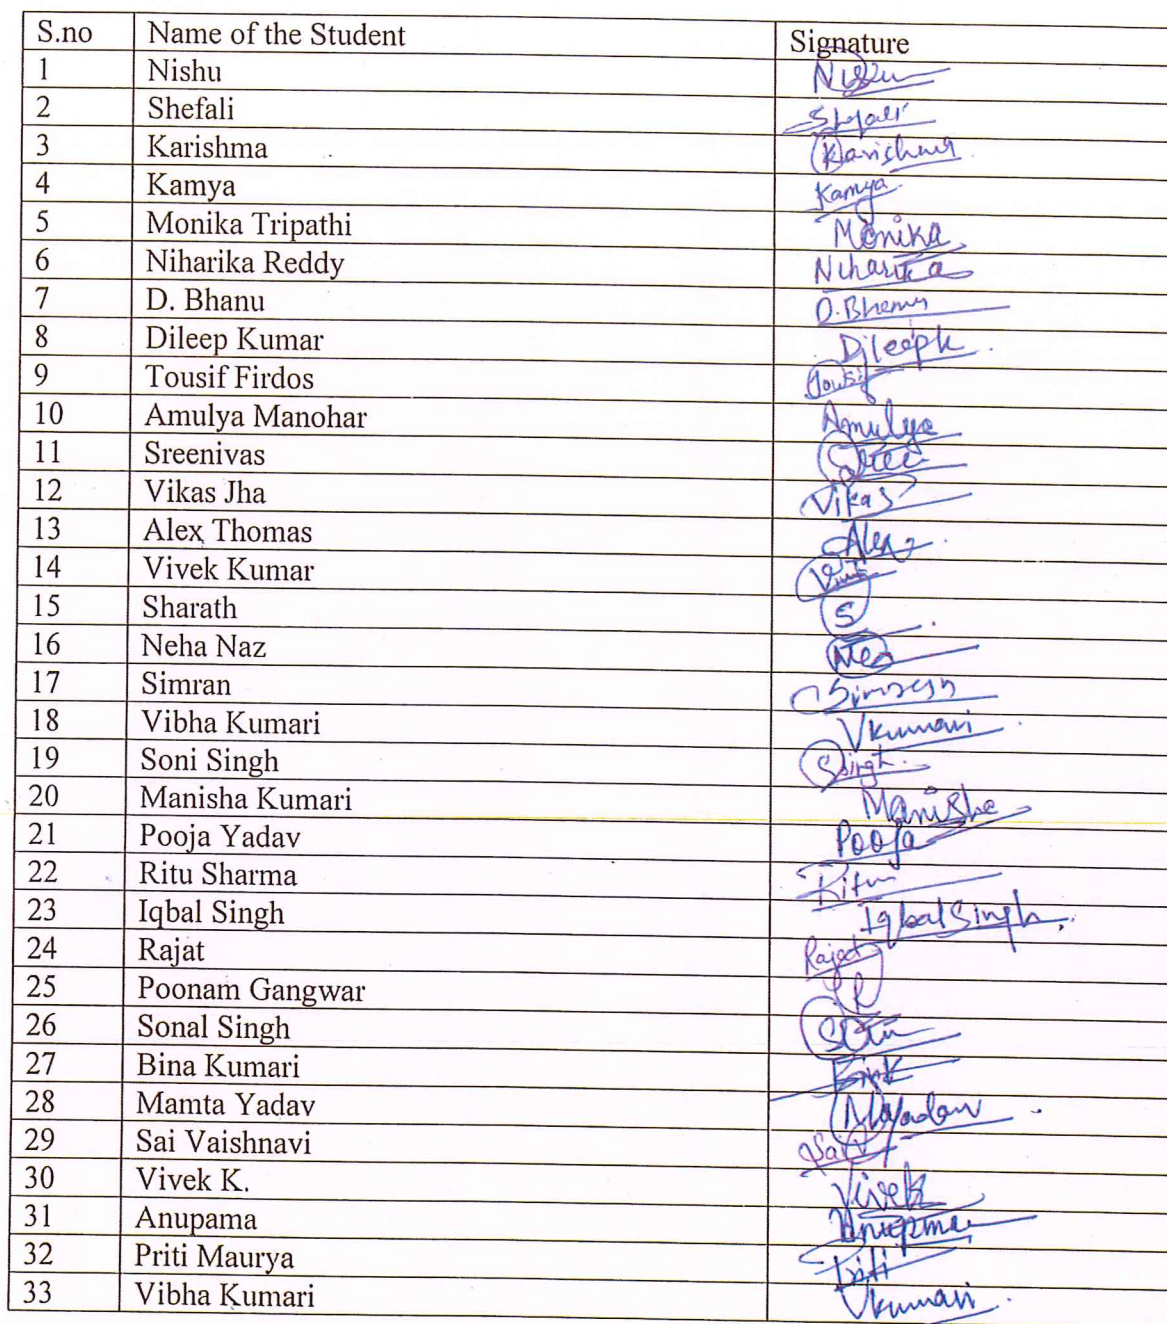 S.no Name of the Student Signature
1 Nishu Nishu
2 Shefali Shefali
3 Karishma Karishma
4 Kamya Kamya
5 Monika Tripathi Monika
6 Niharika Reddy Niharika
7 D. Bhanu D.Bhanu
8 Dileep Kumar Dileepk
9 Tousif Firdos Tousif
10 Amulya Manohar Amulya
11 Sreenivas Sree
12 Vikas Jha Vikas
13 Alex Thomas Alex
14 Vivek Kumar
15 Sharath S
16 Neha Naz
17 Simran Simran
18 Vibha Kumari Vkumari
19 Soni Singh Ssingh
20 Manisha Kumari Manisha
21 Pooja Yadav Pooja
22 Ritu Sharma Ritu
23 Iqbal Singh Iqbal Singh
24 Rajat Rajat
25 Poonam Gangwar P
26 Sonal Singh
27 Bina Kumari
28 Mamta Yadav MYadav
29 Sai Vaishnavi Sai V
30 Vivek K. Vivek
31 Anupama Anupma
32 Priti Maurya Priti
33 Vibha Kumari Vkumari